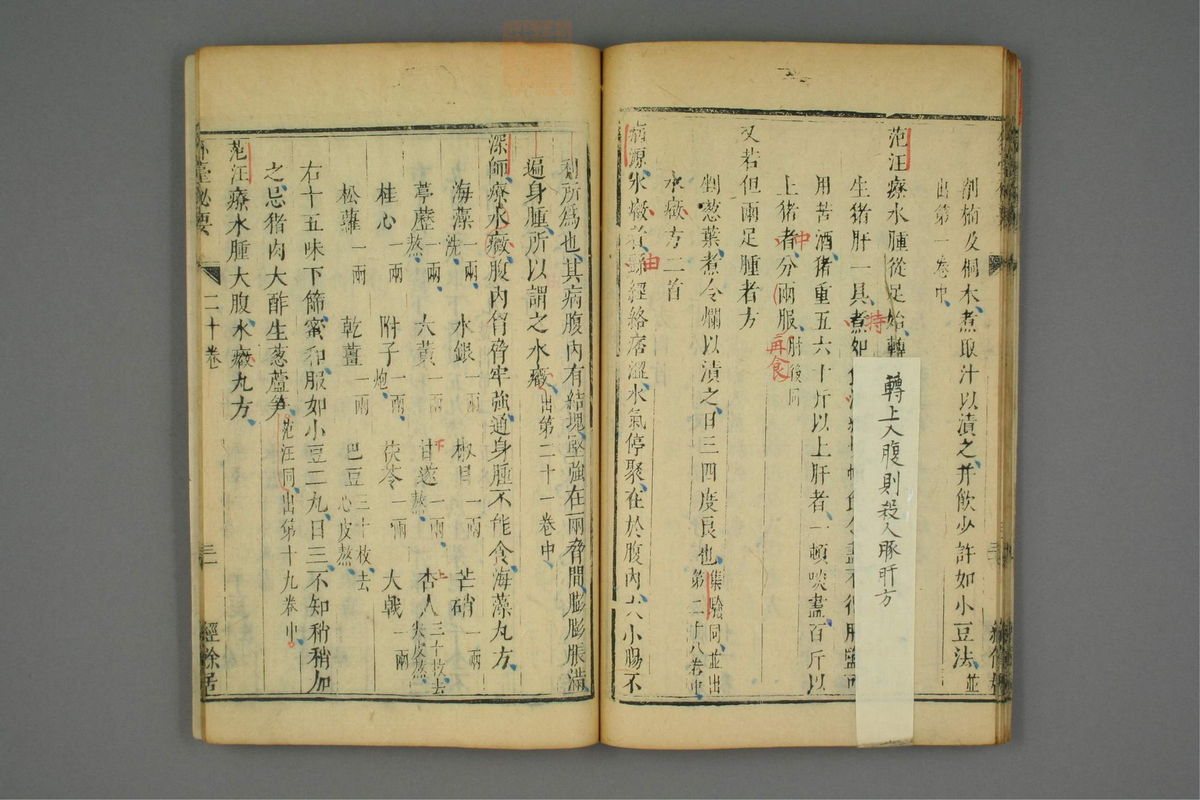 剉楠及桐木煮取汁以漬之并飲少許如小豆法並
出第一卷中
范汪療水腫從足始轉
轉上入腹則殺人豚肝方
生猪肝一具煮如食
持
用苦酒猪重五六十斤以上肝者一頓啖盡百斤以
上猪者分兩服肘後同
中
再食
又若但兩足腫者方
剉葱葉煮令爛以漬之日三四度良也集驗同並出
第二十八卷中
水癥方二首
病源水癥者縣經絡痞澀水氣停聚在於腹內大小腸不
由
利所爲也其病腹內有結塊堅強在兩脅間膨膨脹滿
遍身腫所以謂之水癥出第二十一卷中
深師療水癥腹內胷脅牢強通身腫不能食海藻丸方
海藻一兩洗 水銀一兩 椒目一兩 芒硝一兩
葶藶一兩熬 大黃一兩 甘遂一兩熬 杏人三十枚去尖皮熬
下 上
桂心一兩 附子一兩炮 茯苓一兩 大戟一兩
松蘿一兩 乾薑一兩 巴豆三十枚去心皮熬
右十五味下篩蜜和服如小豆二丸日三不知稍稍加
之忌猪肉大酢生葱蘆笋范汪同出第十九卷中
范汪療水腫大腹水癥丸方
外臺秘要 二十卷 三 經餘居